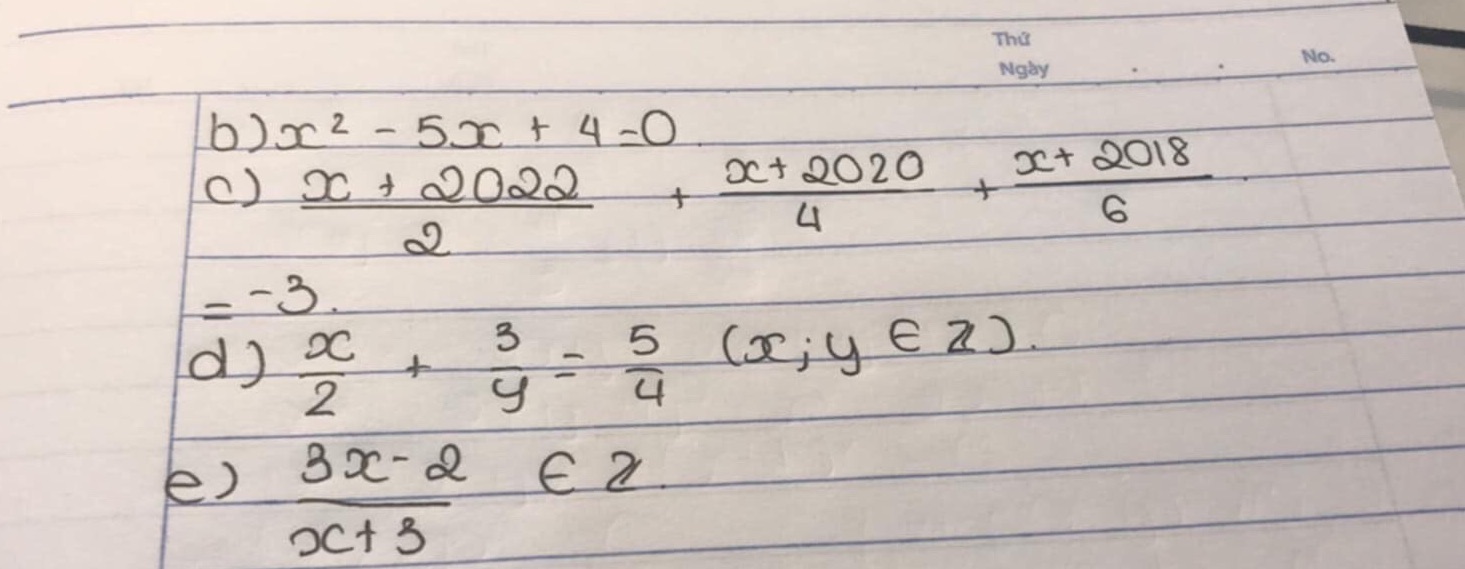 Thứ
Ngày . . No.
b) x² - 5x + 4 = 0
c) \frac{x + 2022}{2} + \frac{x + 2020}{4} + \frac{x + 2018}{6}
= -3.
d) \frac{x}{2} + \frac{3}{y} = \frac{5}{4} (x; y ∈ Z).
e) \frac{3x - 2}{x + 3} ∈ Z.